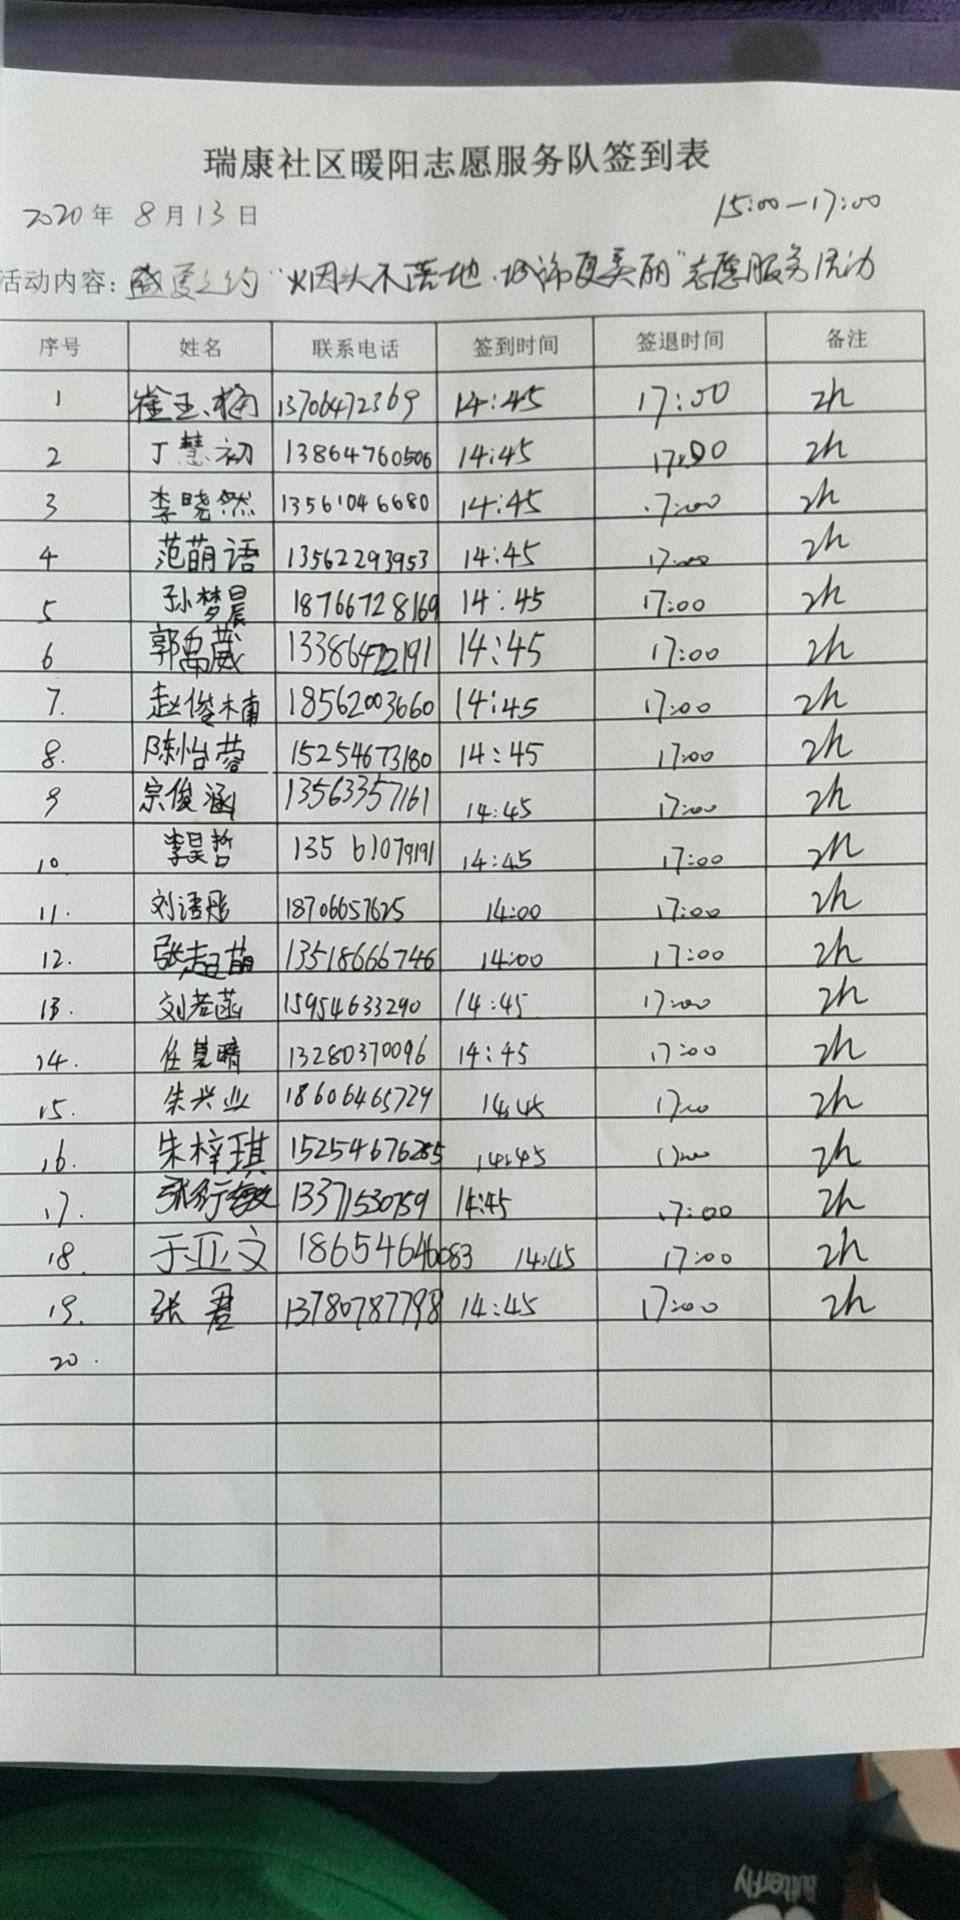 瑞康社区暖阳志愿服务队签到表
2020年 8月13日 15:00-17:00
活动内容: 盛夏之约 "烟头不落地.城市更美丽"志愿服务活动
序号 姓名 联系电话 签到时间 签退时间 备注
1 崔玉梅 13706472369 14:45 17:00 2h
2 丁慧初 13864760506 14:45 17:00 2h
3 李晓然 13561046680 14:45 17:00 2h
4 范萌语 13562293953 14:45 17:00 2h
5 孙梦晨 18766728169 14:45 17:00 2h
6 郭禹葳 14:45 17:00 2h
7. 赵俊楠 18562003660 14:45 17:00 2h
8. 陈怡蓉 15254673180 14:45 17:00 2h
9 宗俊涵 13563357161 14:45 17:00 2h
10. 李昊哲 135 61079191 14:45 17:00 2h
11. 刘语彤 18706657625 14:00 17:00 2h
12. 张赵萌 13518666746 14:00 17:00 2h
13. 刘若菡 15954633290 14:45 17:00 2h
14. 任 晴 13280370096 14:45 17:00 2h
15. 朱兴业 18606465729 14:45 17:00 2h
16. 朱梓琪 15254676285 14:45 17:00 2h
17. 张衍 13371530759 14:45 17:00 2h
18. 于亚文 18654646083 14:45 17:00 2h
19. 张君 13780787798 14:45 17:00 2h
20.
Butterfly